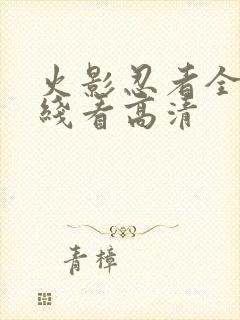 火影忍者全
线看高清
青樟